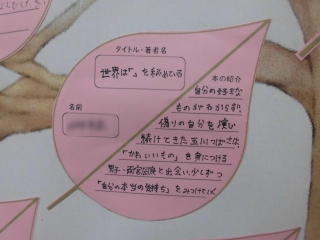 タイトル・著者名
世界は「」を秘めている
本の紹介
自分の好きな
ものがわからず、
偽りの自分を演じ
続けてきた玉川つばさは、
「かわいいもの」を身につける
男子・雨宮
と出会い、少しずつ
「自分の本当の気持ち」をみつけていく
名前